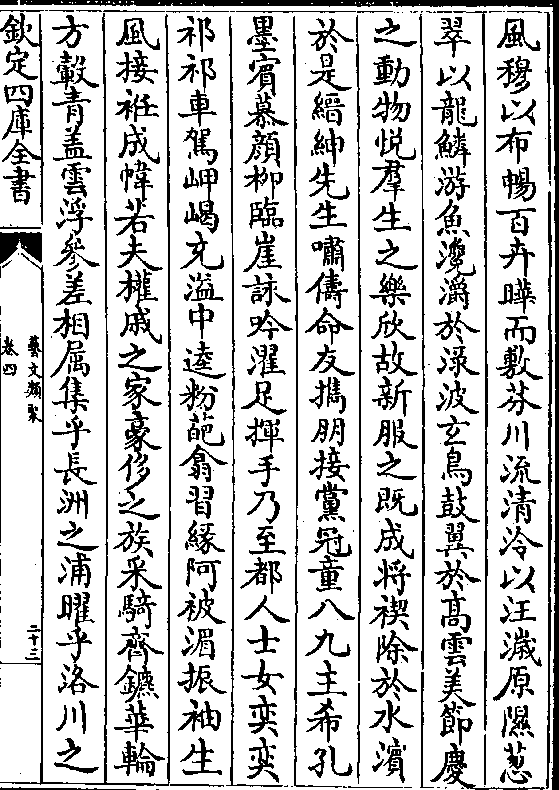 風穆以布暢百卉曄而敷芬川流清泠以汪濊原隰葱
翠以龍鱗游魚瀺灂於淥波玄鳥鼓翼於高雲美節慶
之動物悦羣生之樂欣故新服之既成将禊除於水濱
於是縉紳先生嘯儔命友攜朋接黨冠童八九主希孔
墨賓慕顔柳臨崖詠吟濯足揮手乃至都人士女奕奕
祁祁車駕岬嵑充溢中逵粉葩翕習緣阿被湄振袖生
風接袵成幃若夫權戚之家豪侈之族采騎齊鑣華輪
方轂青盖雲浮參差相屬集乎長洲之浦曜乎洛川之
欽定四庫全書
藝文類聚
卷四
二十三